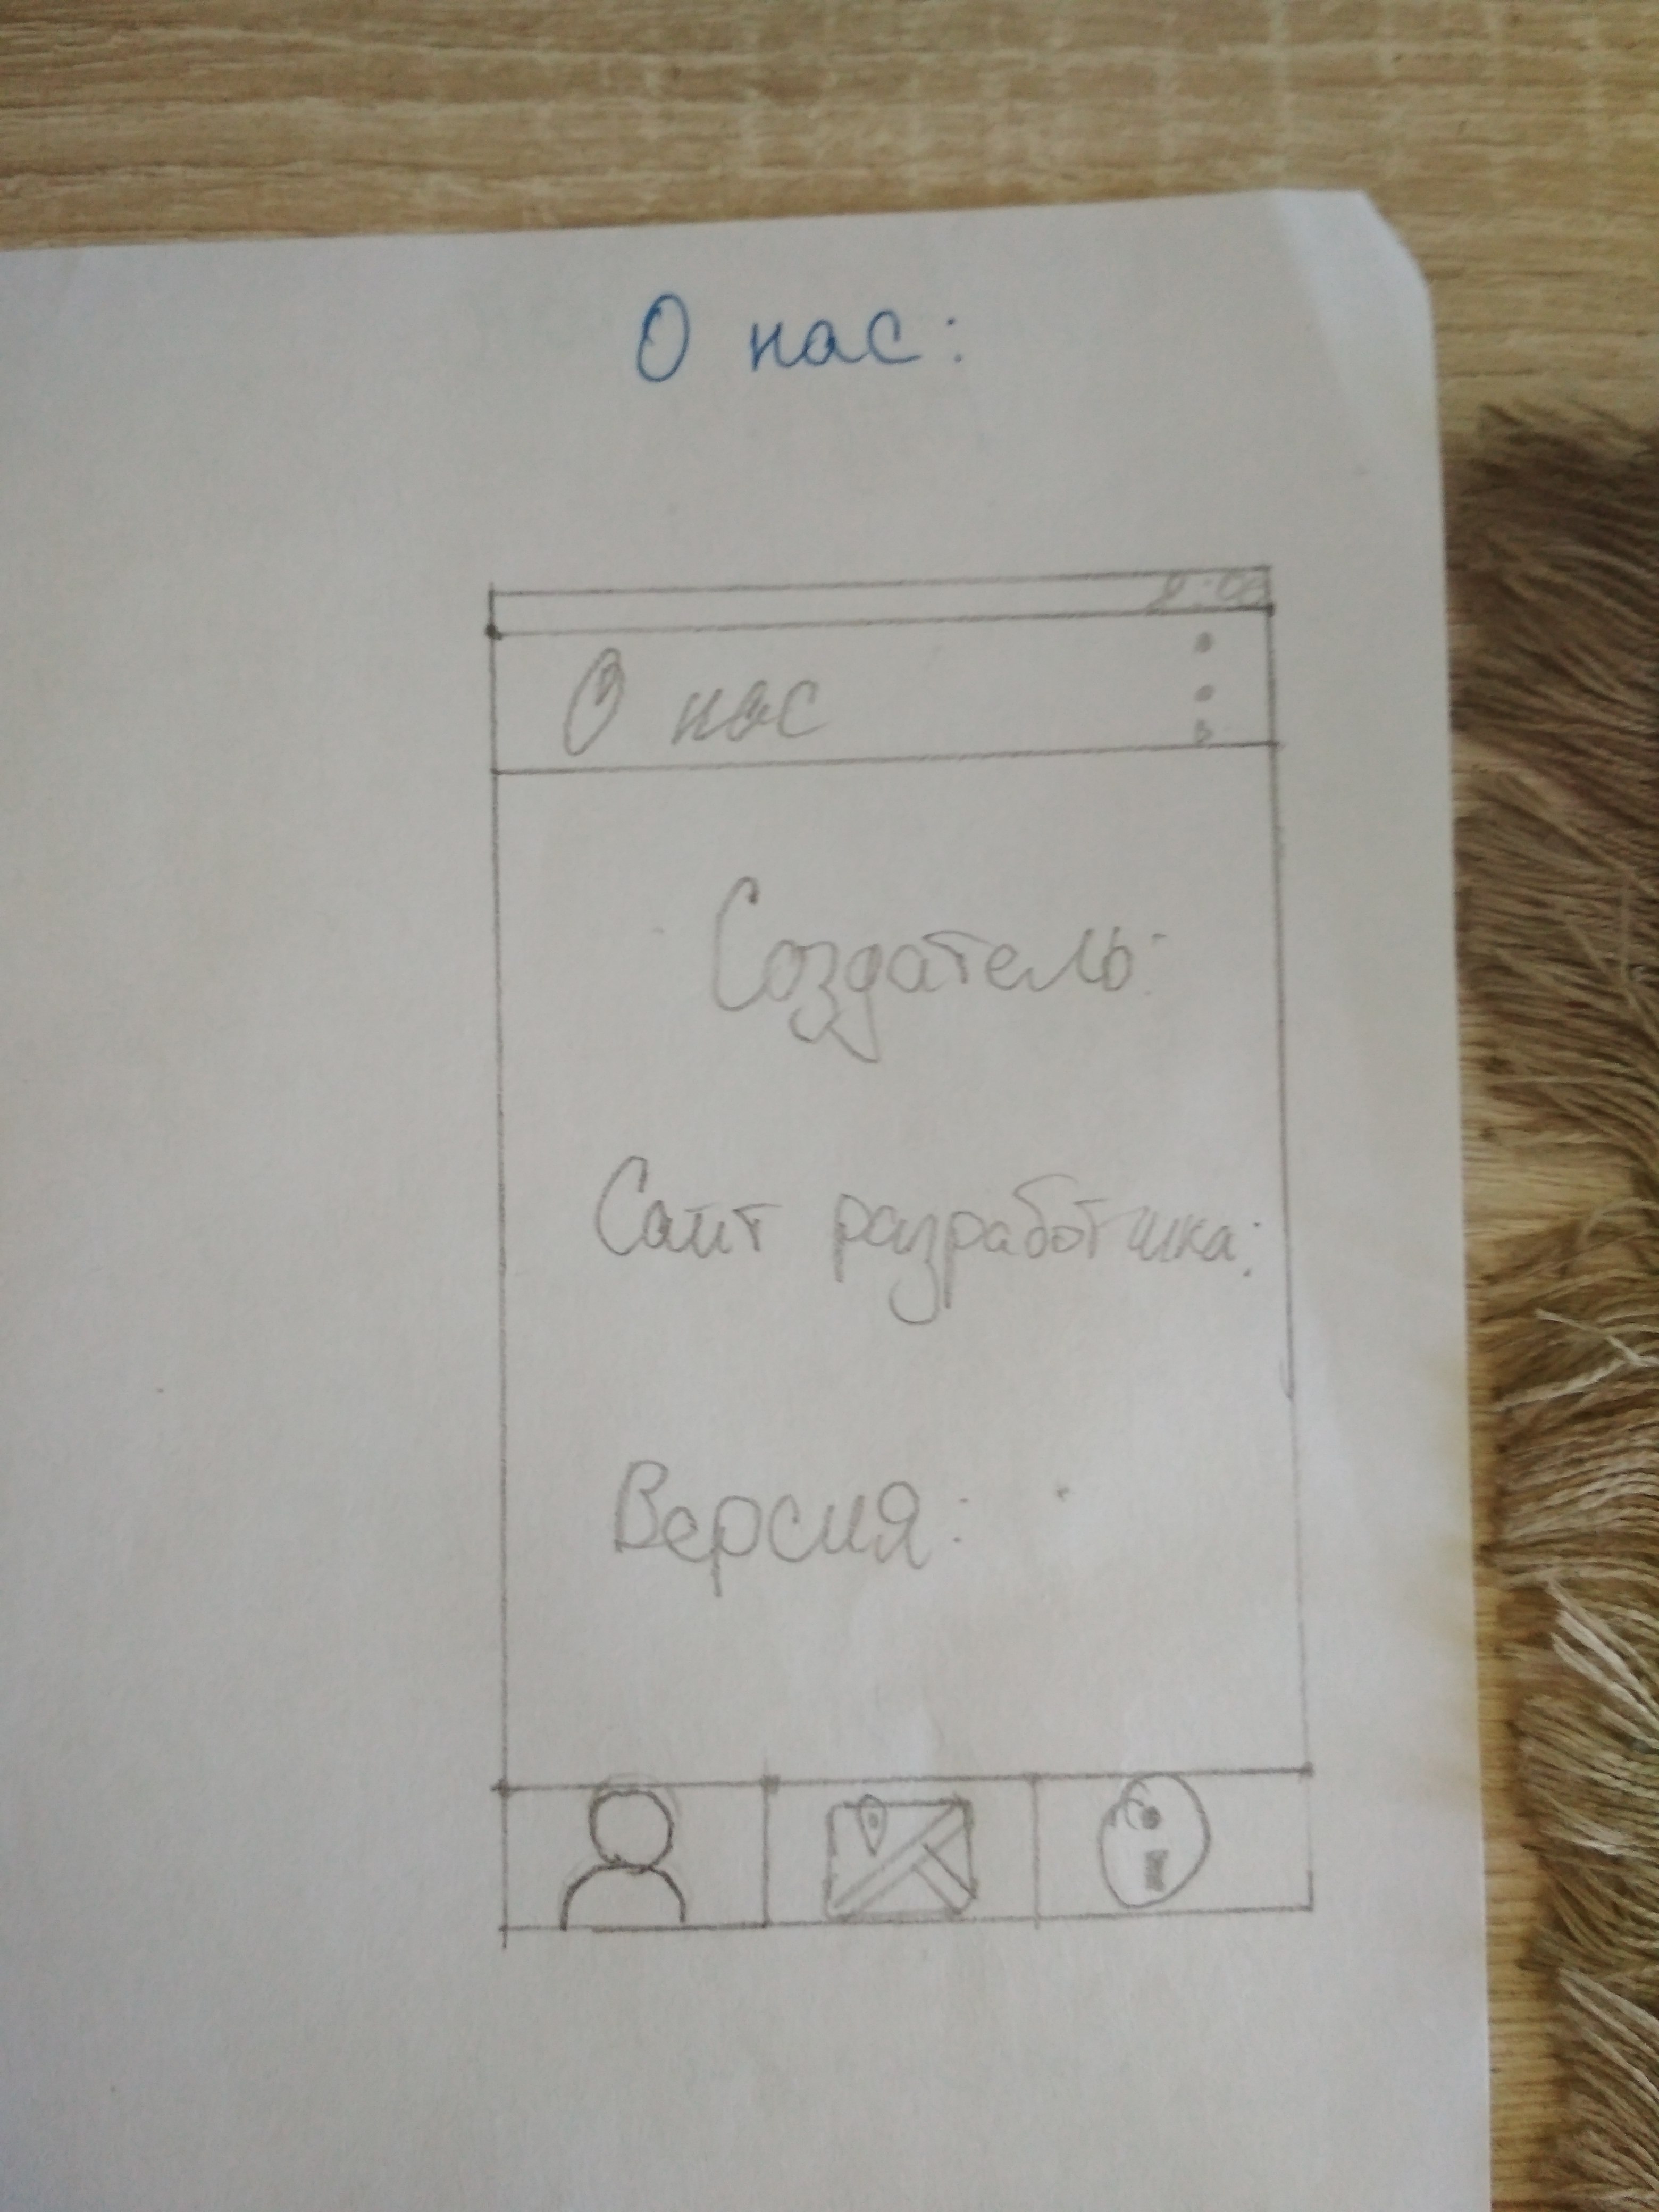 О нас:
О нас
Создатель:
Сайт разработчика:
Версия: